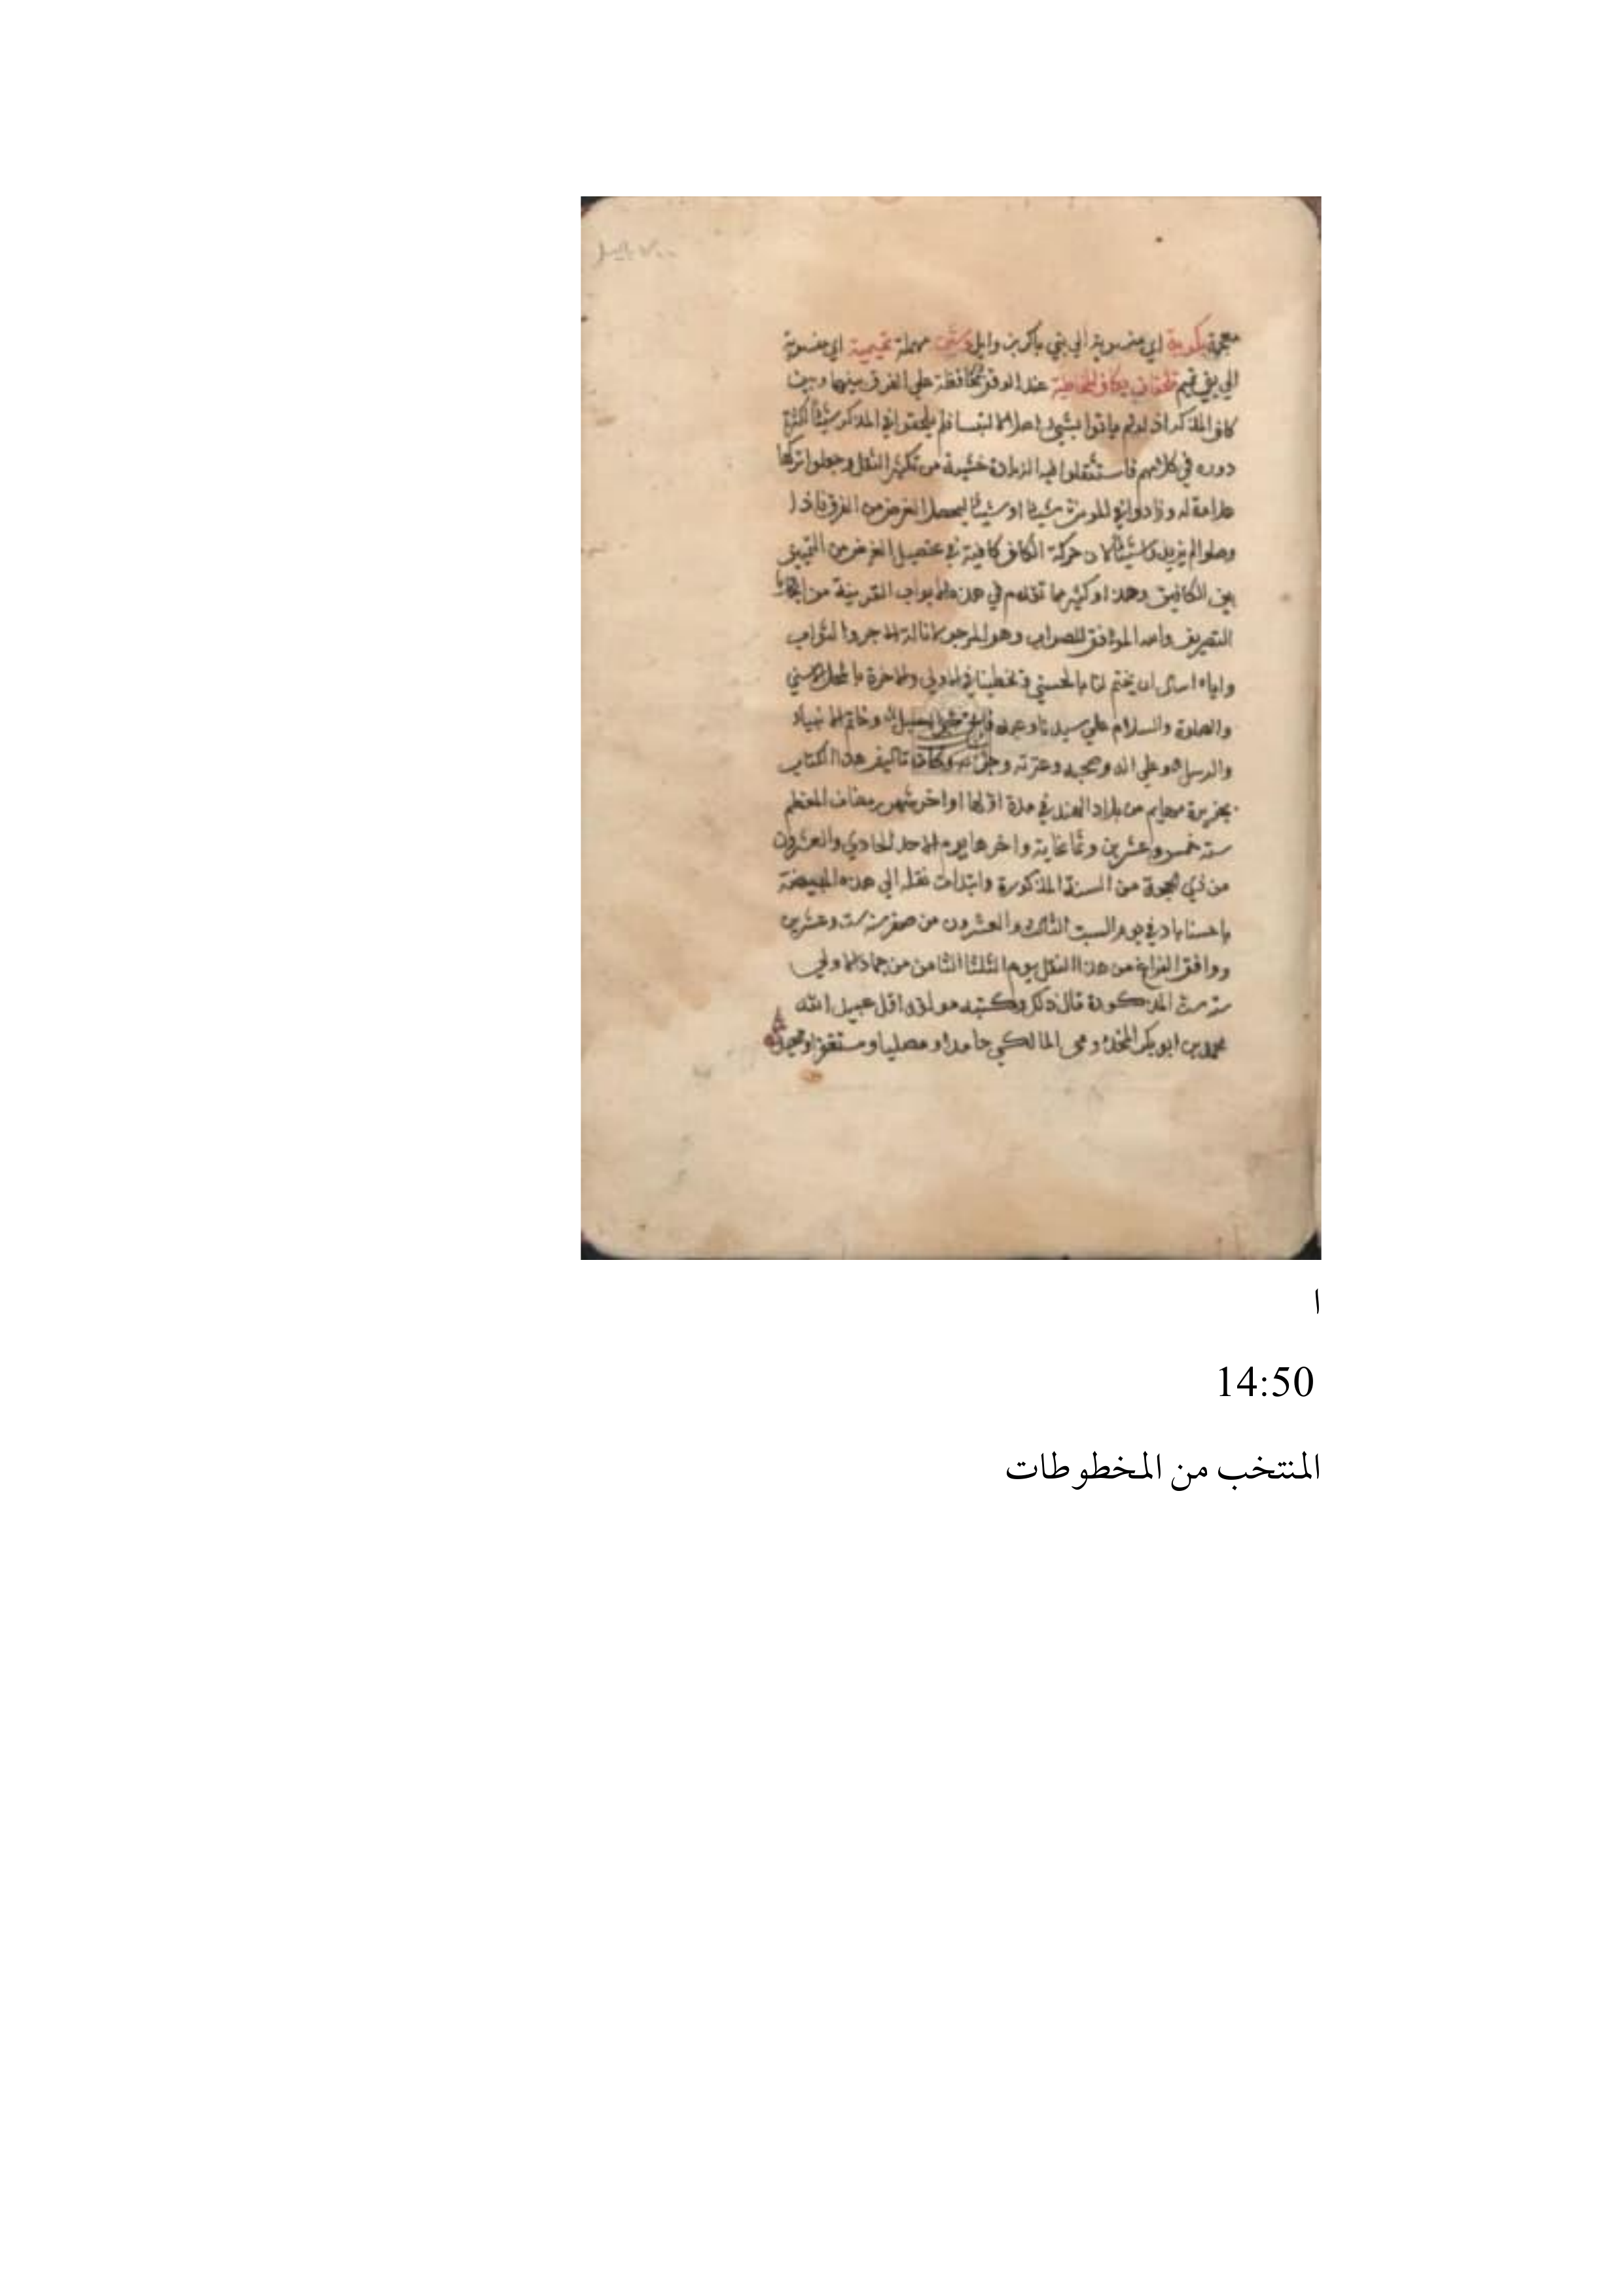 معجمة بكرية اي منسوبة الي بني بكر بن وايل وشين مهملة تميمية اي منسوبة
الي بني تميم تلحقان بكاف المخاطبة عند الوقف محافظة علي الفرق بينها وبين
كاف المذكر اذ لو لم ياتوا بشي لم يلحقوا في المذكر شيئا لكثرة
دوره في كلامهم فاستثقلوا فيه الزيادة خشية من تكثير الثقل وجعلوا تركها
علامة له وزادوا في المونث شينا او سينا ليحصل الغرض من الفرق فاذا
وصلوا لم يزيدوا شيئا لان حركة الكاف كافية في تحصيل الغرض من التمييز
بين الكافين وهذا وكثير مما تقدم في هذه الابواب القريبة من
التصريف والله الموافق للصواب وهو المرجو لانالة الاجر والثواب
واياه اسال ان يختم لنا بالحسني في الاولي والاخرة
والصلاة والسلام علي سيدنا وخاتم الانبياء
والرسل وعلي اله وصحبه وعترته وحزبه وكان تاليف هذا الكتاب
بجزيرة مهايم من بلاد الهند في مدة اولها اواخر شهر رمضان المعظم
سنة خمس وعشرين وثمانماية واخرها يوم الاحد الحادي والعشرون
من ذي الحجة من السنة المذكورة وابتدات نقله الي هذه المبيضة
باحسناباد في يوم السبت الثالث والعشرون من صفر سنة ست وعشرين
ووافق الفراغ من هذا النقل يوم الثلثا الثامن من جماد الاولي
سنة ست المذكورة قال ذلك وكتبه مولفه اقل عبيد الله
محمد بن ابو بكر المخزومي المالكي حامدا ومصليا ومستغفرا
ا
14:50
المنتخب من المخطوطات